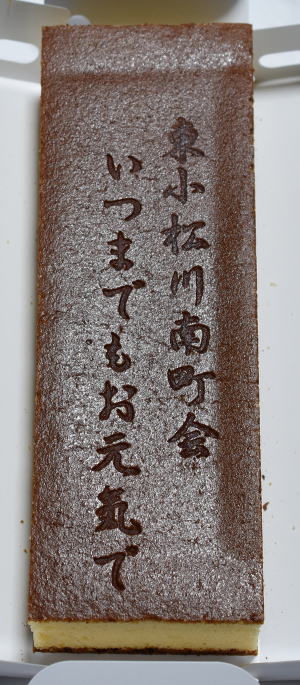 東小松川南町会
いつまでもお元気で